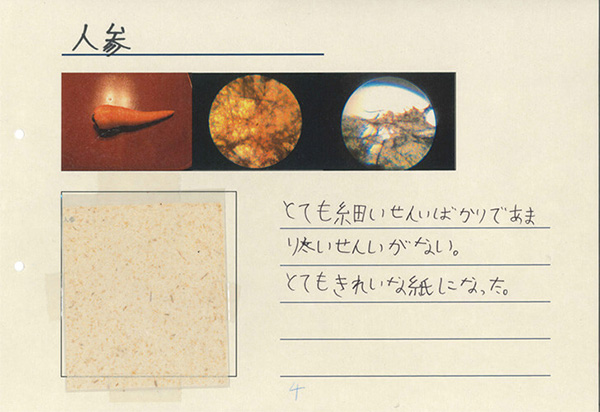 人参
とても細いせんいばかりであま
り太いせんいがない。
とてもきれいな紙になった。
4